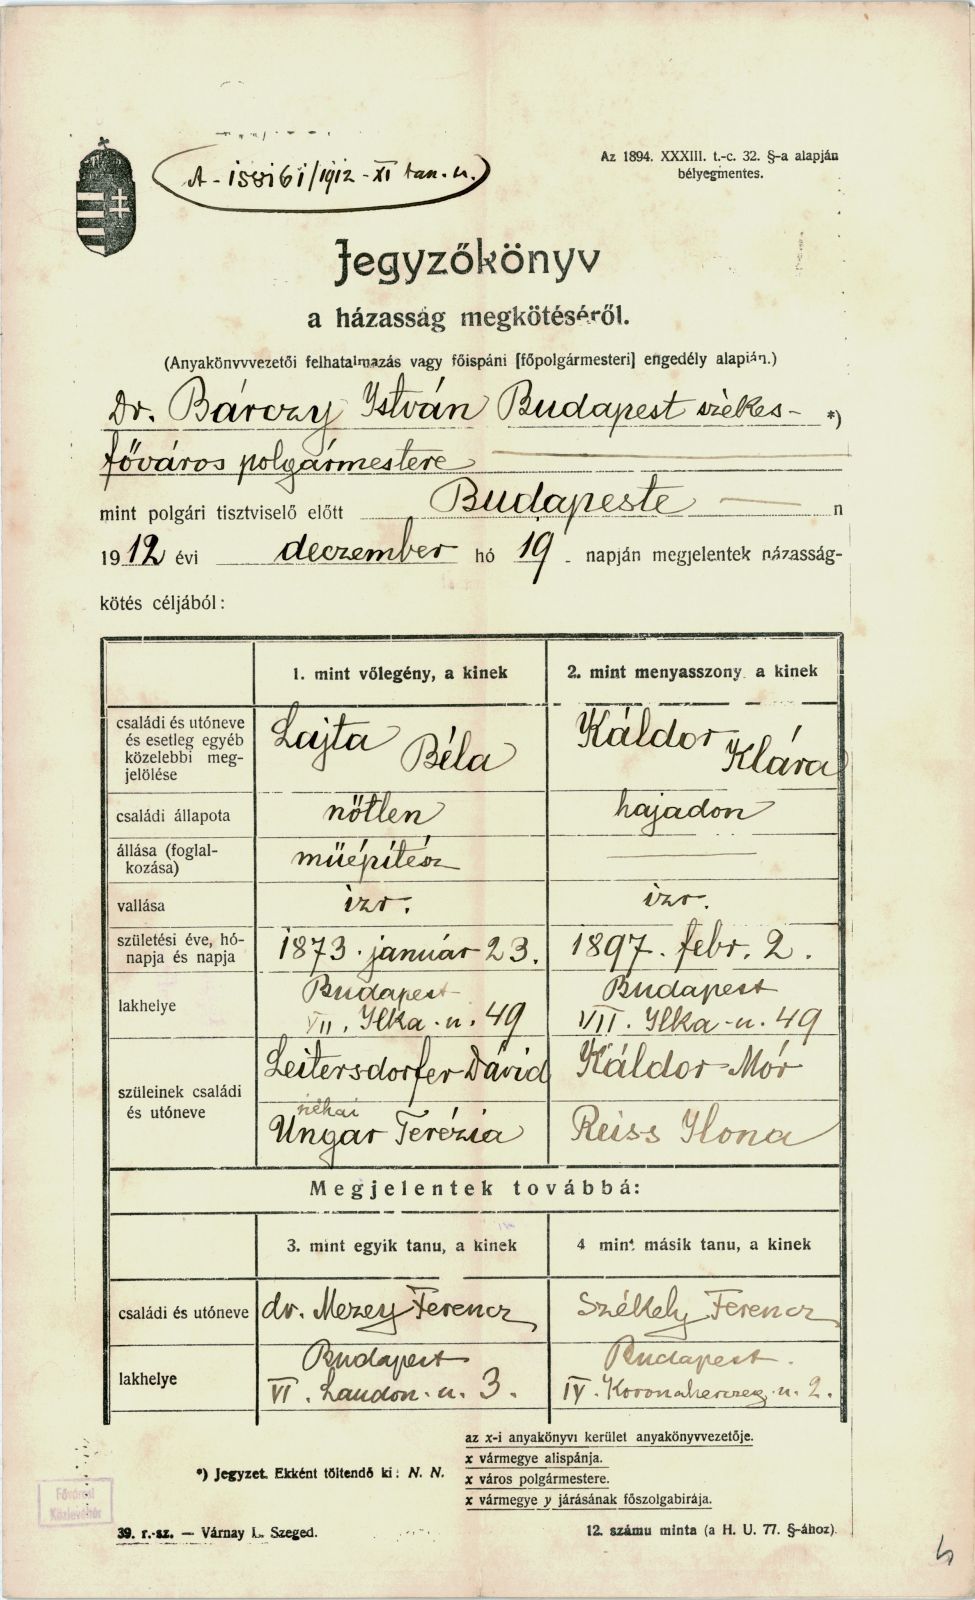 Az 1894. XXXIII. t.-c. 32. §-a alapján
bélyegmentes.
/1912-XI tan. u.
Jegyzőkönyv
a házasság megkötéséről.
(Anyakönyvvezetői felhatalmazás vagy főispáni [főpolgármesteri] engedély alapján.)
Dr. Bárczy István Budapest székes- *)
főváros polgármestere
mint polgári tisztviselő előtt Budapeste n
1912 évi deczember hó 19 napján megjelentek házasság-
kötés céljából:
1. mint vőlegény, a kinek
2. mint menyasszony a kinek
családi és utóneve
és esetleg egyéb
közelebbi meg-
jelölése
Lajta Béla
Káldor Klára
családi állapota
nőtlen
hajadon
állása (foglal-
kozása)
műépítész
vallása
izr.
izr.
születési éve, hó-
napja és napja
1873. január 23.
1897. febr. 2.
lakhelye
Budapest
VII. Ilka-u. 49
Budapest
VII. Ilka-u. 49
szüleinek családi
és utóneve
Leitersdorfer Dávid
Káldor Mór
néhai
Ungar Terézia
Reiss Ilona
Megjelentek továbbá:
3. mint egyik tanu, a kinek
4 mint másik tanu, a kinek
családi és utóneve
dr. Mezey Ferencz
Székely Ferencz
lakhelye
Budapest
VI. Laudon-u. 3.
Budapest.
IV. Koronaherczeg-u. 2.
*) Jegyzet. Ekként töltendő ki: N. N.
az x-i anyakönyvi kerület anyakönyvvezetője.
x vármegye alispánja.
x város polgármestere.
x vármegye y járásának főszolgabirája.
Fővárosi
Közlevéltár
39. r.-sz. — Várnay L. Szeged.
12. számu minta (a H. U. 77. §-ához).